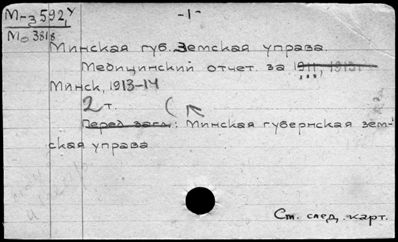 М-з 592, У
-1-
Мо 3818
Минская губ. Земская управа.
Медицинский отчет. за 1911, 1913.
Минск, 1913-14
2 т.
Перед загл.: Минская губернская зем-
ская управа
См. след. карт.